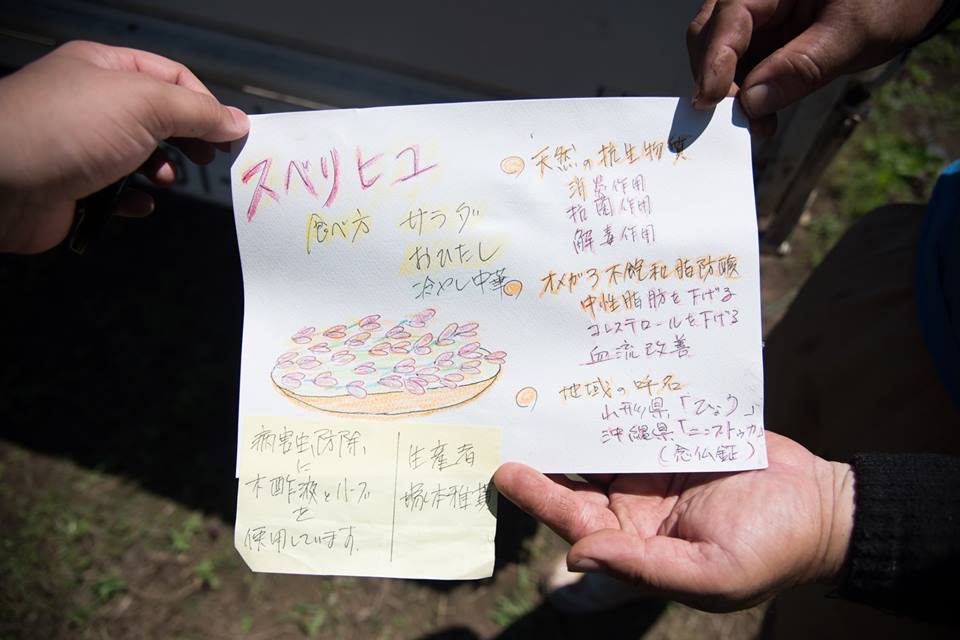 スベリヒユ
食べ方 サラダ
おひたし
冷やし中華
天然の抗生物質
消炎作用
抗菌作用
解毒作用
オメガ3不飽和脂防酸
中性脂肪を下げる
コレステロールを下げる
血流改善
地域の呼名
山形県「ひょう」
沖縄県「ニンブトゥカー」
(念仏鉦)
病害虫防除
に
木酢液とハーブ
を
使用しています。
生産者
塚本雅